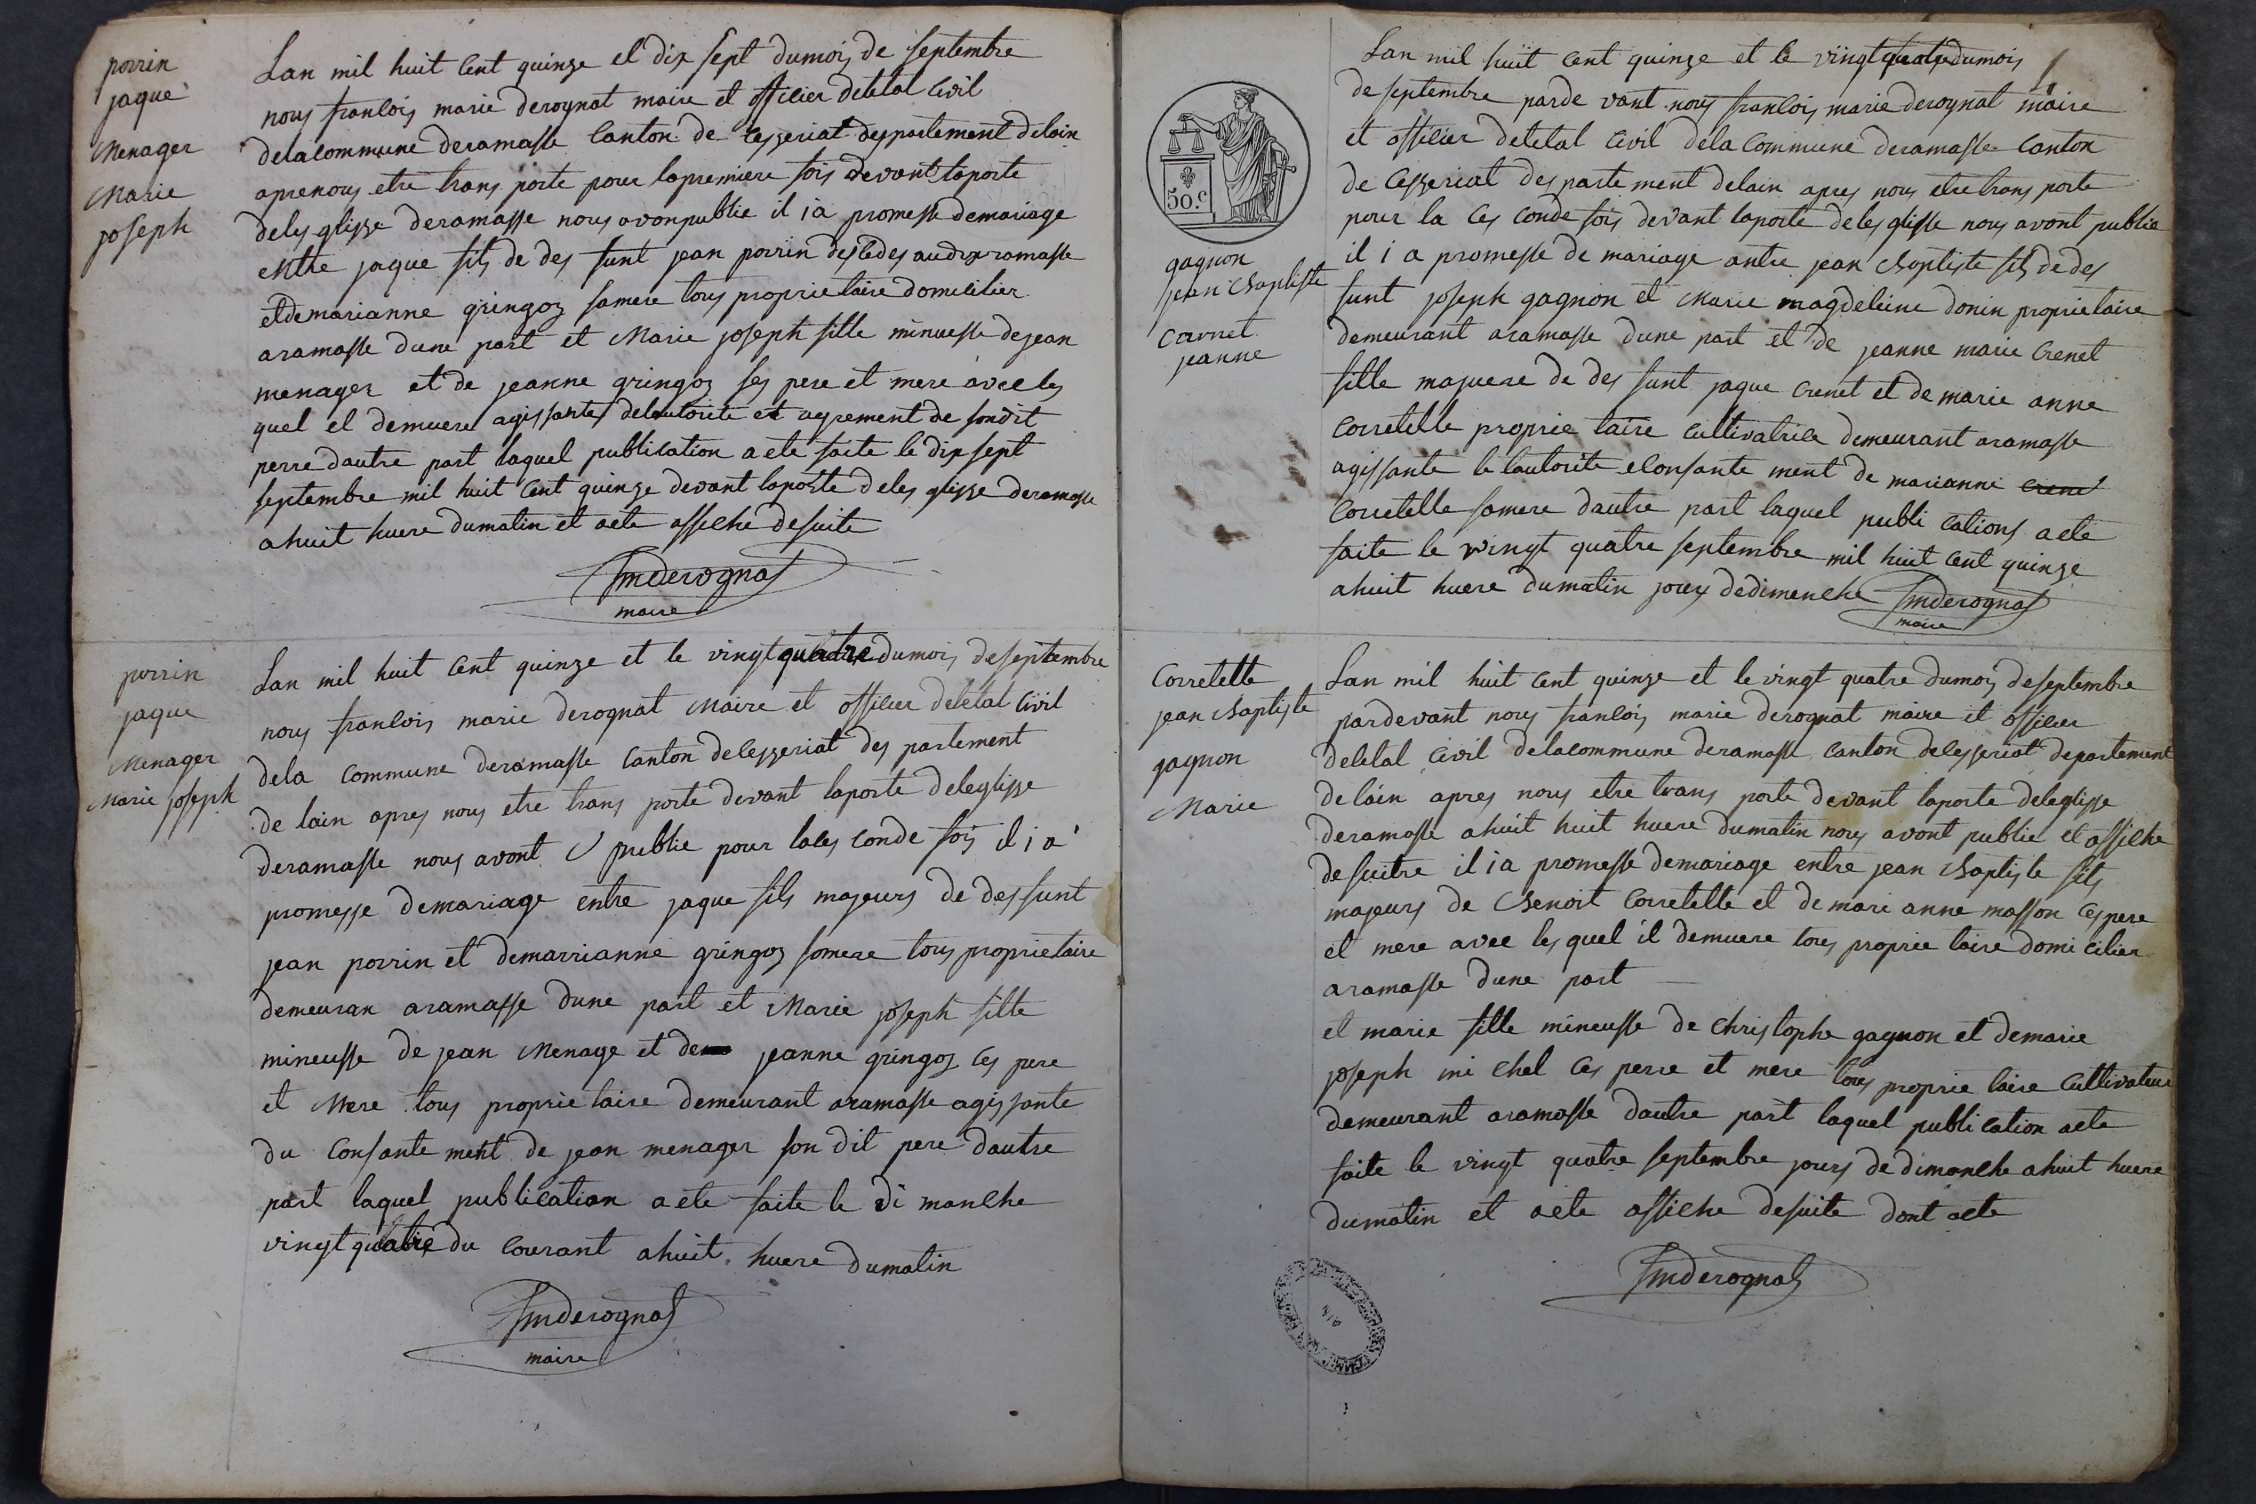 porrin
jaque
Menager
Marie
joseph
Lan mil huit Cent quinze et dix sept dumois de septembre
nous francois marie derognat maire et officier detetat Civil
delacommune deramasse Canton de Cesseriat despartement delain
apre nous etre trans porte pour lapremiere fois devant laporte
deles glisse deramasse nous avon publie il i a promesse demariage
entre jaque fils de des funt jean porrin desedes audix ramasse
et demarianne gringoz samere tous proprietaire domicilier
aramasse dune part et Marie joseph fille minuesse dejean
menager et de jeanne gringoz ses pere et mere avec les
quel el demuere agissante delautorite et agrement de sondit
perre dautre part laquel publication a ete faite le dix sept
septembre mil huit Cent quinze devant laporte deles glisse deramasse
ahuit huere dumatin et aete affiche desuite
fmderognat
maire
porrin
jaque
Menager
Marie joseph
Lan mil huit Cent quinze et le vingt quatre dumois deseptembre
nous francois marie derognat Maire et officier detetat Civil
dela Commune deramasse Canton deCesseriat des partement
de lain apres nous etre trans porte devant laporte deleglisse
deramasse nous avont publie pour lases conde fois il i a
promesse demariage entre jaque fils majeurs de des funt
jean porrin et demarrianne gringoz somere tous proprietaire
demeuran aramasse dune part et Marie joseph fille
mineusse de jean Menage et de jeanne gringoz Ces pere
et Mere tous proprie taire demeurant aramasse agissante
du Consante ment de jean menager son dit pere dautre
part laquel publication a ete faite le di manche
vingt quatre du Courant ahuit huere dumatin
fmderognat
maire
50.c
gagnon
jean Baptiste
Carnet
jeanne
Lan mil huit Cent quinze et le vingt quatre dumois
de septembre parde vant nous francois marie derognat maire
et officier detetat Civil dela Commune deramasse Canton
de Cesseriat des parte ment delain apres nous etre trans porte
pour la Ces Conde fois devant laporte deles glisse nous avont publie
il i a promesse de mariage antre jean Baptiste fils de des
funt joseph gagnon et Marie magdeleine donin proprietaire
demeurant aramasse dune part et de jeanne marie Crenet
fille majuere de des funt jaque Crenet et de marie anne
Corretelle proprie taire Cultivatrice demeurant aramasse
agissante le lautorite elonsante ment de marianne Crene
Corretelle samere dautre part laquel publi Cations a ete
faite le vingt quatre septembre mil huit Cent quinze
ahuit huere dumatin jours dedimenche fmderognat
maire
Corretelle
jean Baptiste
gagnon
Marie
Lan mil huit Cent quinze et le vingt quatre dumois deseptembre
pardevant nous francois marie derognat maire et officier
detetat Civil delacommune deramasse Canton deCesseriat departement
de lain apres nous etre trans porte devant laporte deleglisse
deramasse ahuit huit huere dumatin nous avont publie et affiche
de suitre il i a promesse demariage entre jean Baptiste fils
majeurs de Benoit Corretelle et de mari anne masson Ces pere
et mere avec les quel il demuere tous proprie taire domi cilier
aramasse dune part
et marie fille mineusse de Christophe gagnon et demarie
joseph mi chel Ces perre et mere tous proprie taire Cultivateur
demeurant aramasse dautre part laquel publication aete
faite le vingt quatre septembre jours de dimanche ahuit huere
dumatin et aete affiche desuite dont acte
fmderognat